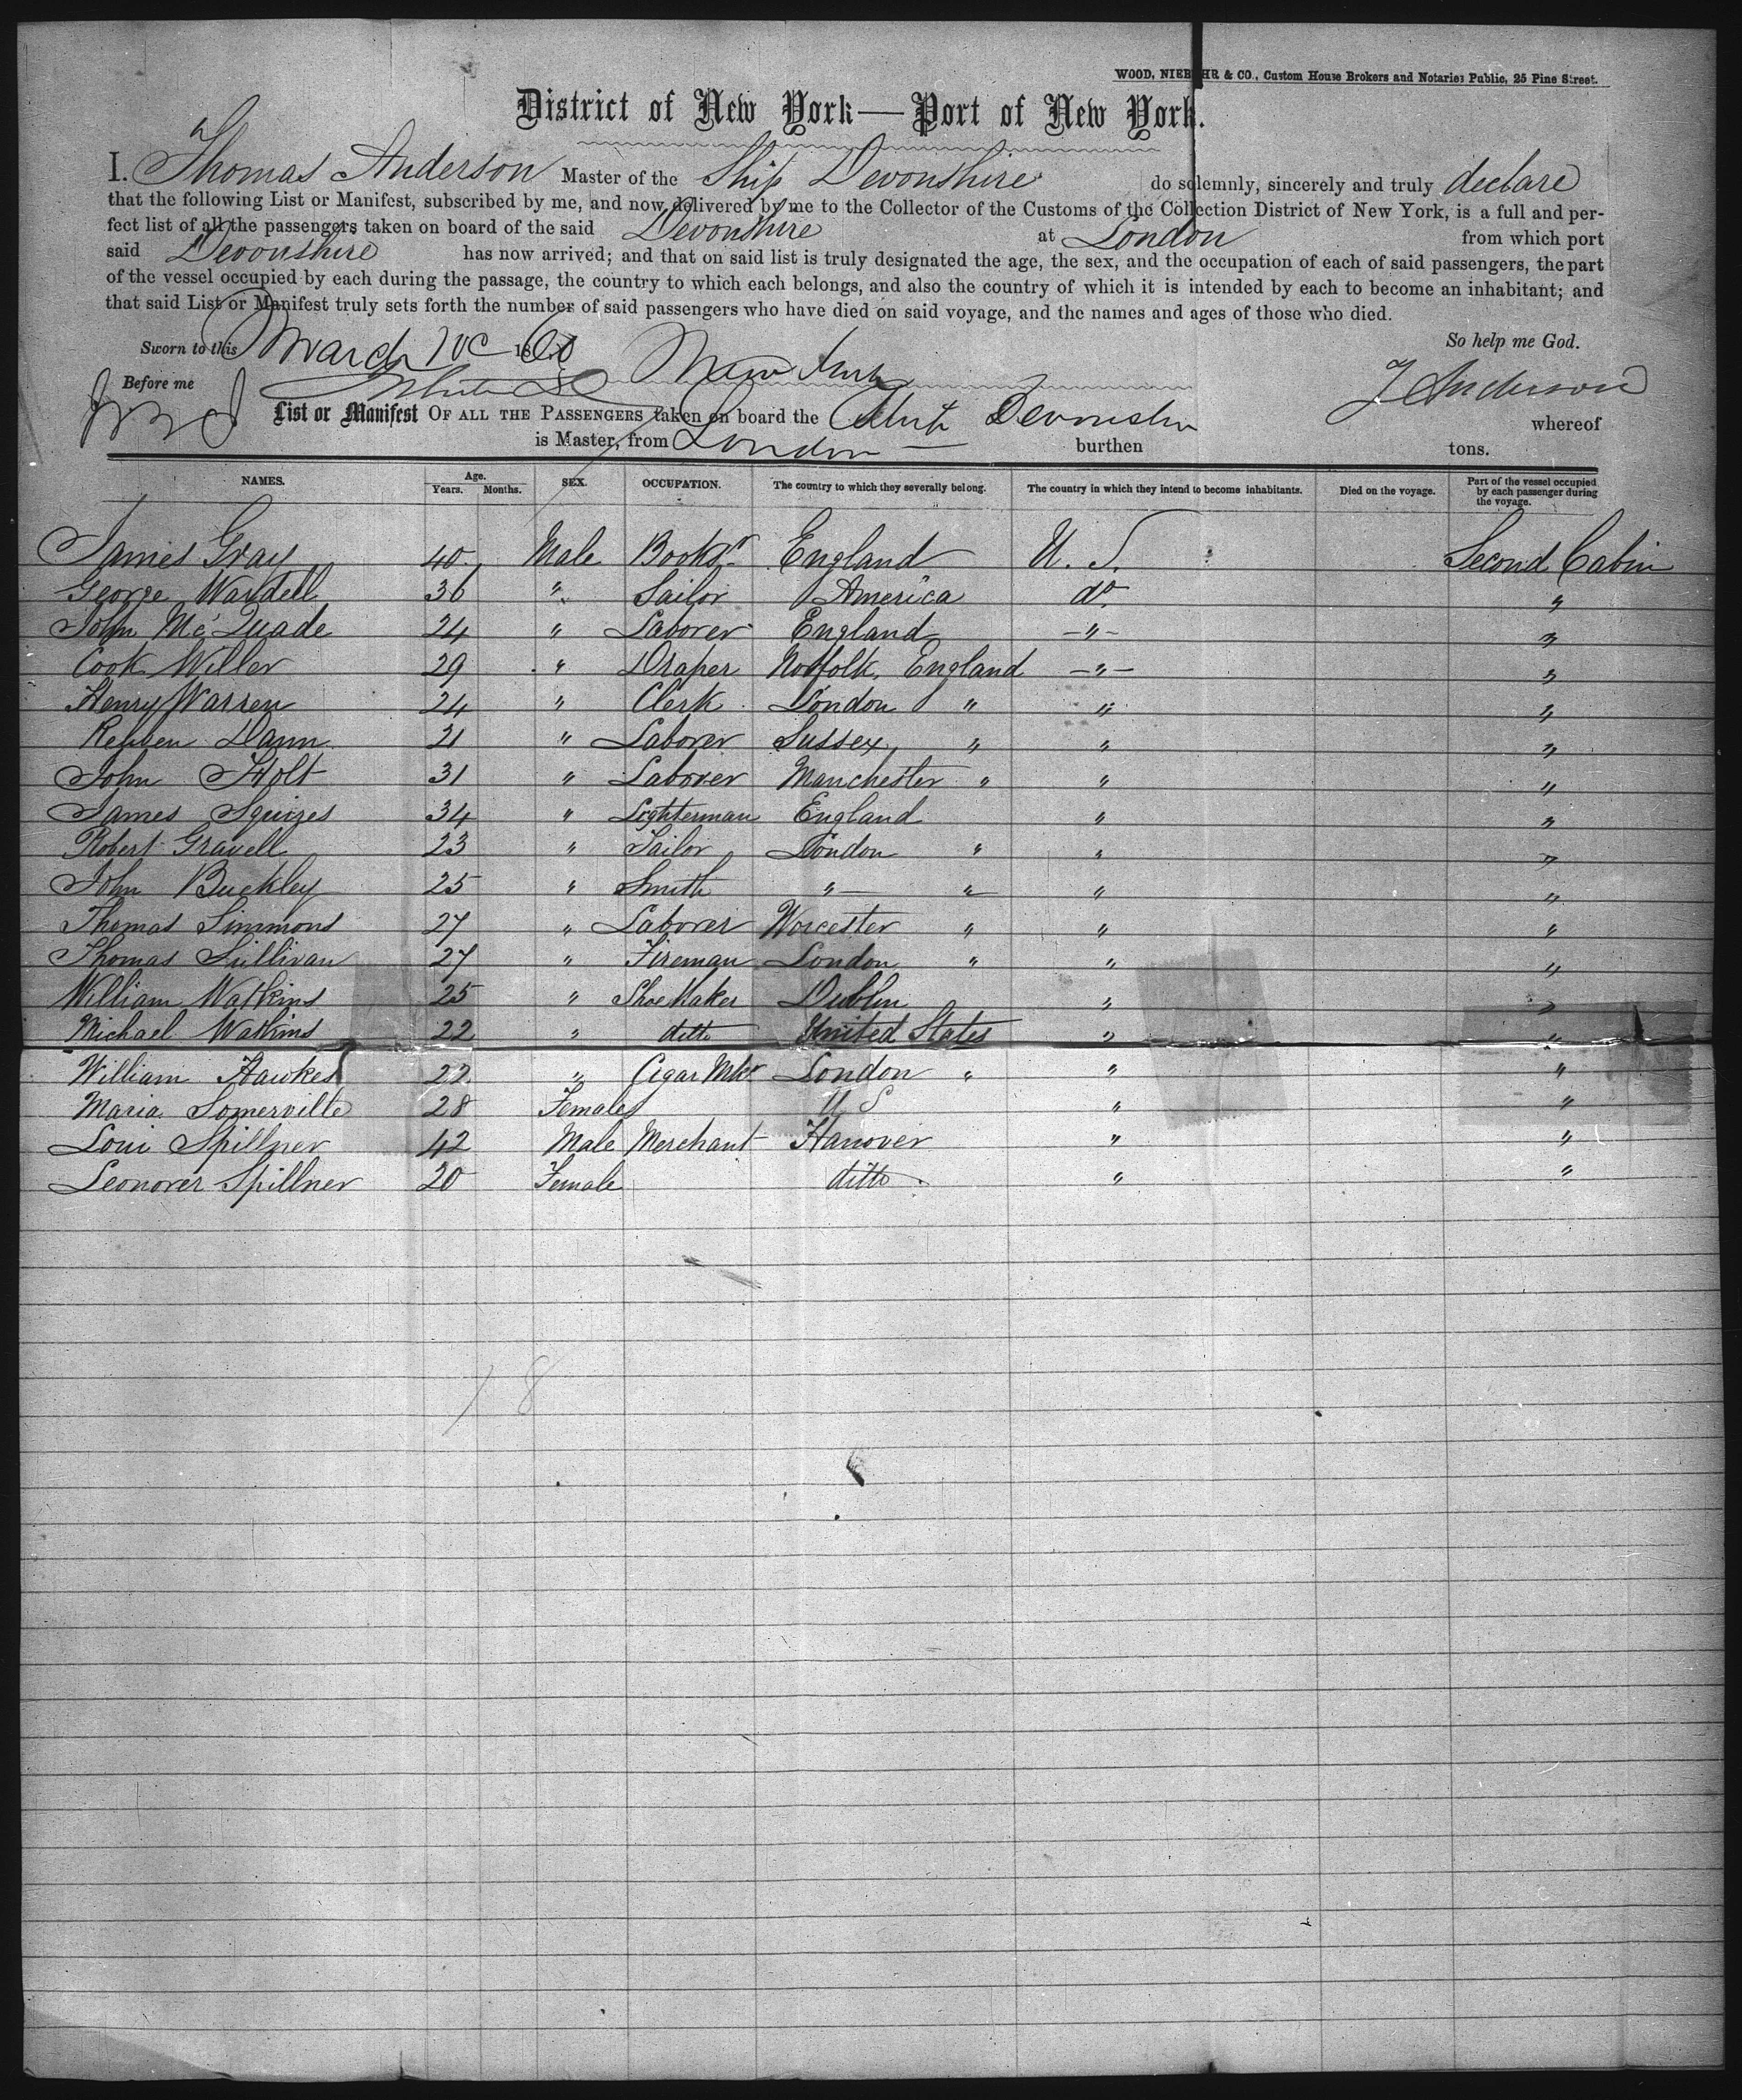 WOOD, NIEBUHR & CO., Custom House Brokers and Notaries Public, 25 Pine Street.
District of New York—Port of New York.
I. Thomas Anderson Master of the Ship Devonshire do solemnly, sincerely and truly declare
that the following List or Manifest, subscribed by me, and now delivered by me to the Collector of the Customs of the Collection District of New York, is a full and per-
fect list of all the passengers taken on board of the said Devonshire at London from which port
said Devonshire has now arrived; and that on said list is truly designated the age, the sex, and the occupation of each of said passengers, the part
of the vessel occupied by each during the passage, the country to which each belongs, and also the country of which it is intended by each to become an inhabitant; and
that said List or Manifest truly sets forth the number of said passengers who have died on said voyage, and the names and ages of those who died.
Sworn to this March 1860 So help me God.
Before me T Anderson
List or Manifest OF ALL THE PASSENGERS taken on board the Ship Devonshire whereof
is Master, from London burthen tons.
NAMES. Age. Years. Months. SEX. OCCUPATION. The country to which they severally belong. The country in which they intend to become inhabitants. Died on the voyage. Part of the vessel occupied by each passenger during the voyage.
James Gray 40 Male Bookr England U. S. Second Cabin
George Wardell 36 " Sailor America do. "
John Mc Quade 24 " Laborer England -"- "
Cook Willer 29 " Draper Norfolk, England -"- "
Henry Warren 24 " Clerk London " " "
Reuben Dann 21 " Laborer Sussex, " " "
John Holt 31 " Laborer Manchester " " "
James Squires 34 " Lighterman England " "
Robert Gravell 23 " Tailor London " " "
John Buckley 25 " Smith " " " "
Thomas Simmons 27 " Laborer Worcester " " "
Thomas Sullivan 27 " Fireman London " " "
William Watkins 25 " Shoe Maker Dublin " "
Michael Watkins 22 " ditto United States " "
William Hawkes 22 " Cigar Mkr London " " "
Maria Somerville 28 Female U S " "
Loui Spillner 42 Male Merchant Hanover " "
Leonorer Spillner 20 Female ditto " "
18